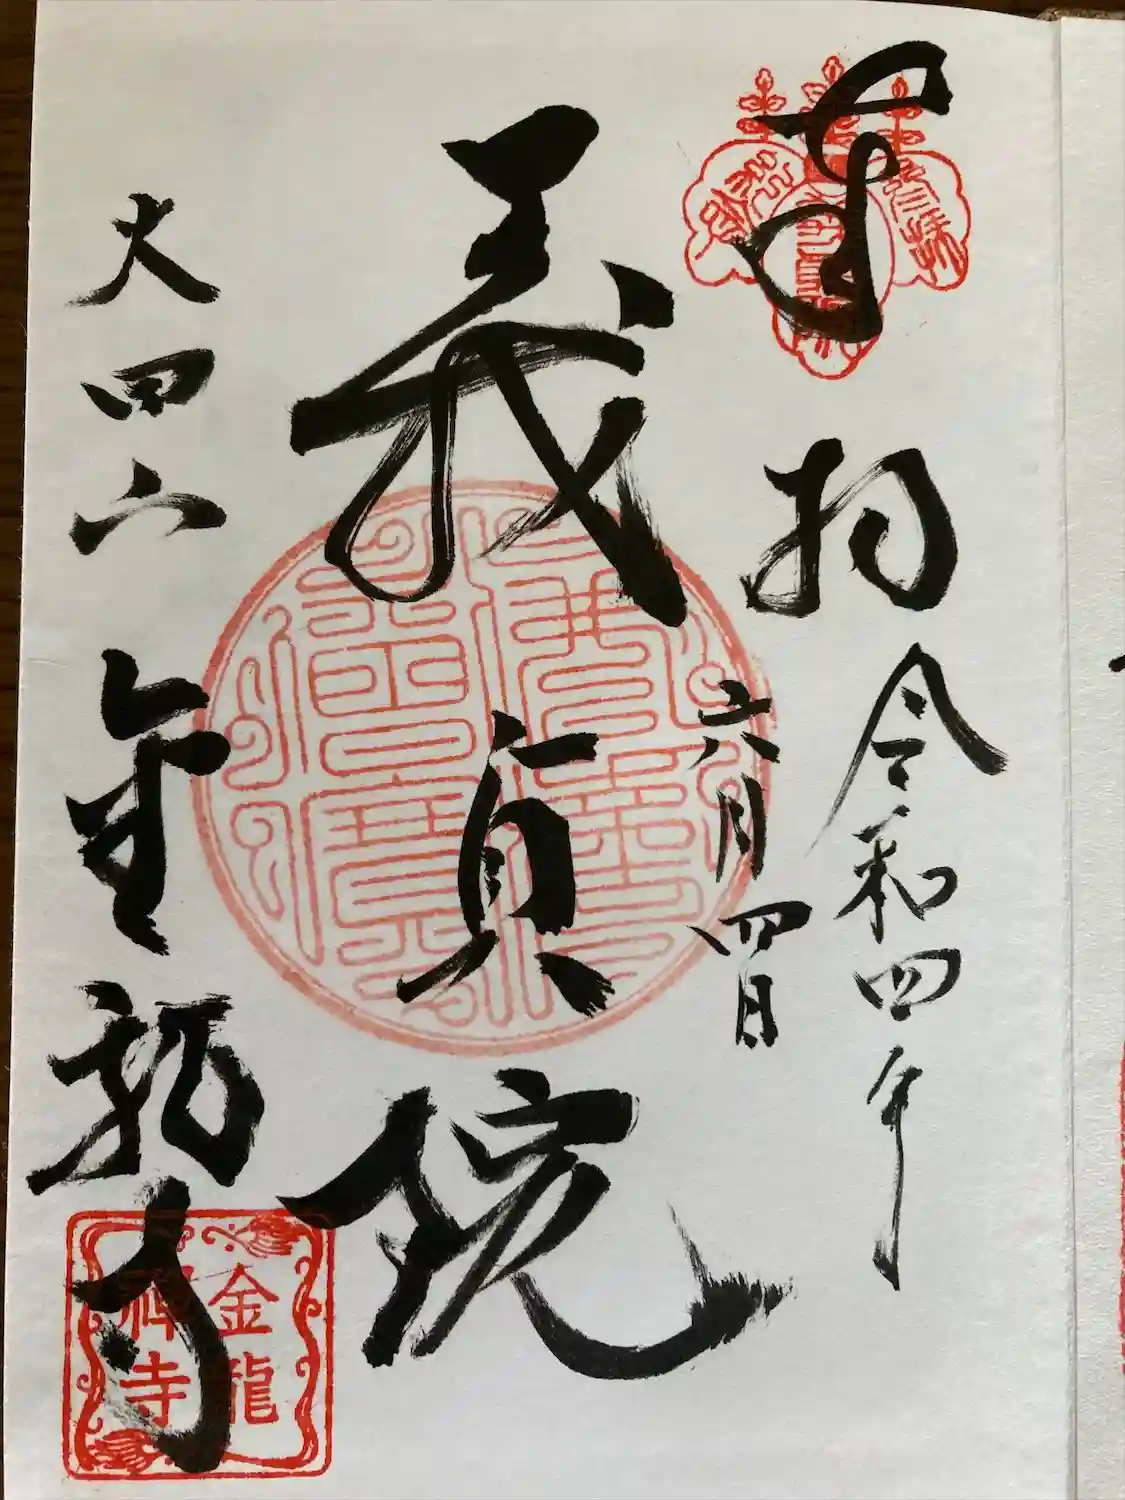 奉拝
令和四年
六月四日
義貞院
太田山
金龍寺
金龍
禅寺